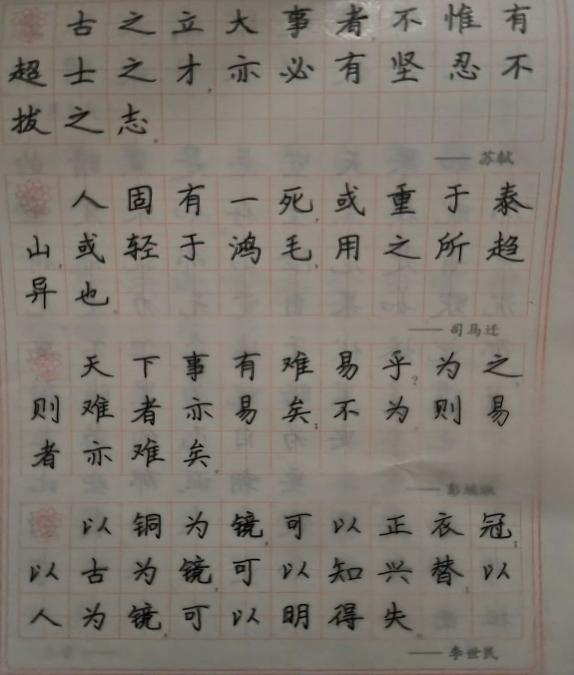 古之立大事者不惟有
超士之才，亦必有坚忍不
拔之志。
——苏轼
人固有一死，或重于泰
山，或轻于鸿毛，用之所趋
异也
——司马迁
天下事有难易乎？为之
则难者亦易矣；不为则易
者亦难矣。
——彭端淑
以铜为镜，可以正衣冠；
以古为镜，可以知兴替；以
人为镜，可以明得失。
——李世民